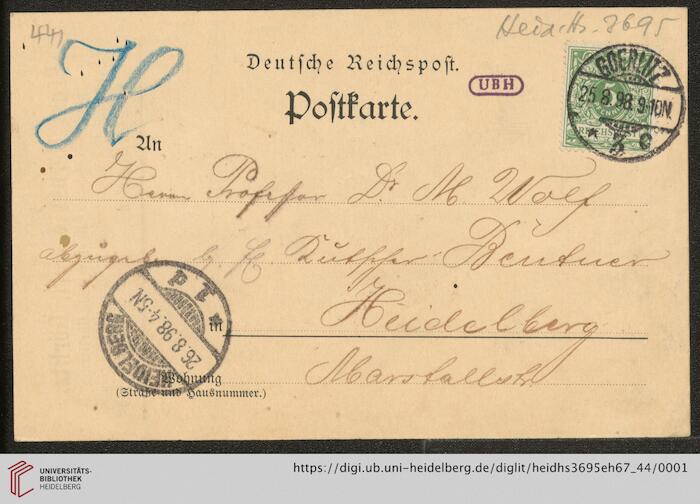 441
Heid. Hs. 3695
H
Deutsche Reichspost.
UBH
Postkarte.
GOERLITZ
25.8.98.9-10N.
REICHSPOST
* 2 c
An
Herrn Professor Dr. M. Wolf
abzugeb. b. H. Kutscher Beutner
in Heidelberg
Marstallstr
HEIDELBERG
26.8.98.4-5N
Wohnung
(Straße und Hausnummer.)
UNIVERSITÄTS-
BIBLIOTHEK
HEIDELBERG
https://digi.ub.uni-heidelberg.de/diglit/heidhs3695eh67_44/0001